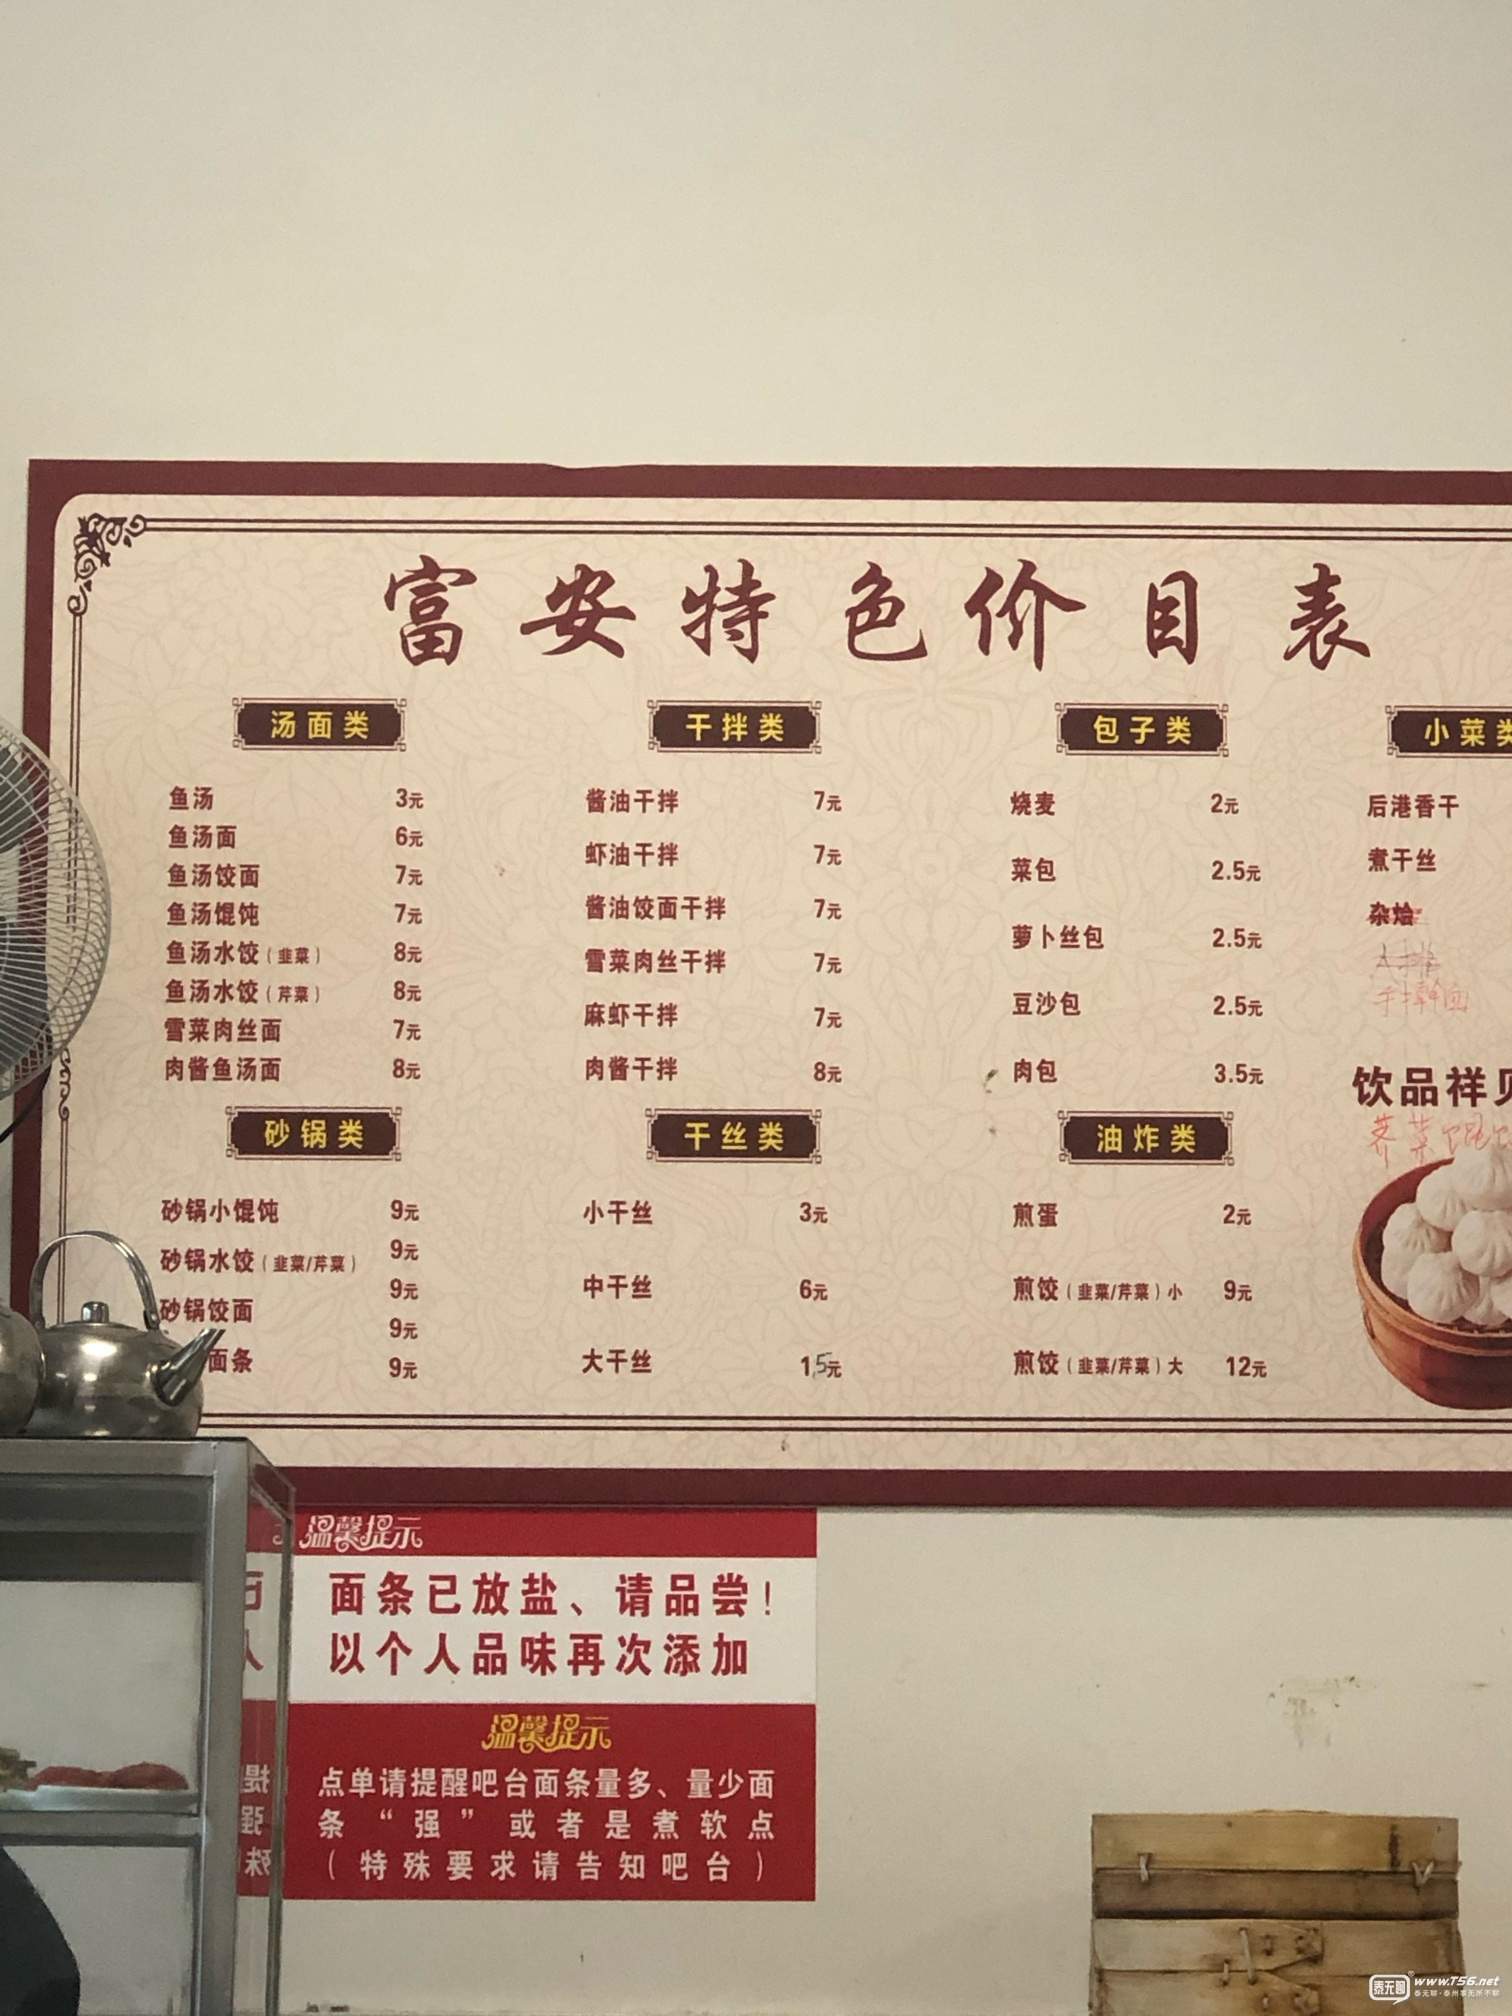 富安特色价目表
汤面类
鱼汤 3元
鱼汤面 6元
鱼汤饺面 7元
鱼汤馄饨 7元
鱼汤水饺（韭菜） 8元
鱼汤水饺（芹菜） 8元
雪菜肉丝面 7元
肉酱鱼汤面 8元
干拌类
酱油干拌 7元
虾油干拌 7元
酱油饺面干拌 7元
雪菜肉丝干拌 7元
麻虾干拌 7元
肉酱干拌 8元
包子类
烧麦 2元
菜包 2.5元
萝卜丝包 2.5元
豆沙包 2.5元
肉包 3.5元
小菜类
后港香干
煮干丝
杂烩
手擀面
饮品祥见
荠菜馄
砂锅类
砂锅小馄饨 9元
砂锅水饺（韭菜/芹菜） 9元
砂锅饺面 9元
9元
面条 9元
干丝类
小干丝 3元
中干丝 6元
大干丝 15元
油炸类
煎蛋 2元
煎饺（韭菜/芹菜）小 9元
煎饺（韭菜/芹菜）大 12元
温馨提示
面条已放盐、请品尝！
以个人品味再次添加
温馨提示
点单请提醒吧台面条量多、量少面
条“强”或者是煮软点
（特殊要求请告知吧台）
泰无聊
www.T56.net
泰无聊·泰州事无所不聊